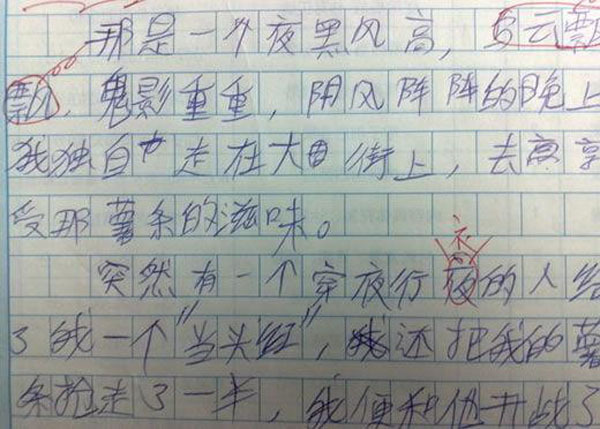 那是一个夜黑风高，乌云飘
飘，鬼影重重，阴风阵阵的晚上
我独自走在大街上，去享
受那薯条的滋味。
衣
突然有一个穿夜行夜的人给
了我一个“当头红”，还把我的薯
条抢走了一半，我便和他开战了